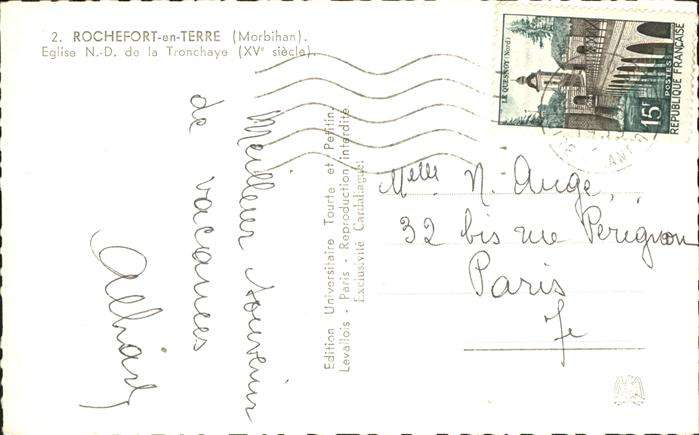 2. ROCHEFORT-en-TERRE (Morbihan).
Eglise N.-D. de la Tronchaye (XVe siècle).
Meilleur souvenir
de vacances
Edition Universitaire Tourte et Petitin
Levallois - Paris - Reproduction interdite
Exclusivité Cardaliaguet
LE QUESNOY (Nord)
15F
POSTES
REPUBLIQUE FRANÇAISE
Melle N. Auge,
32 bis rue Perignon
Paris
7e